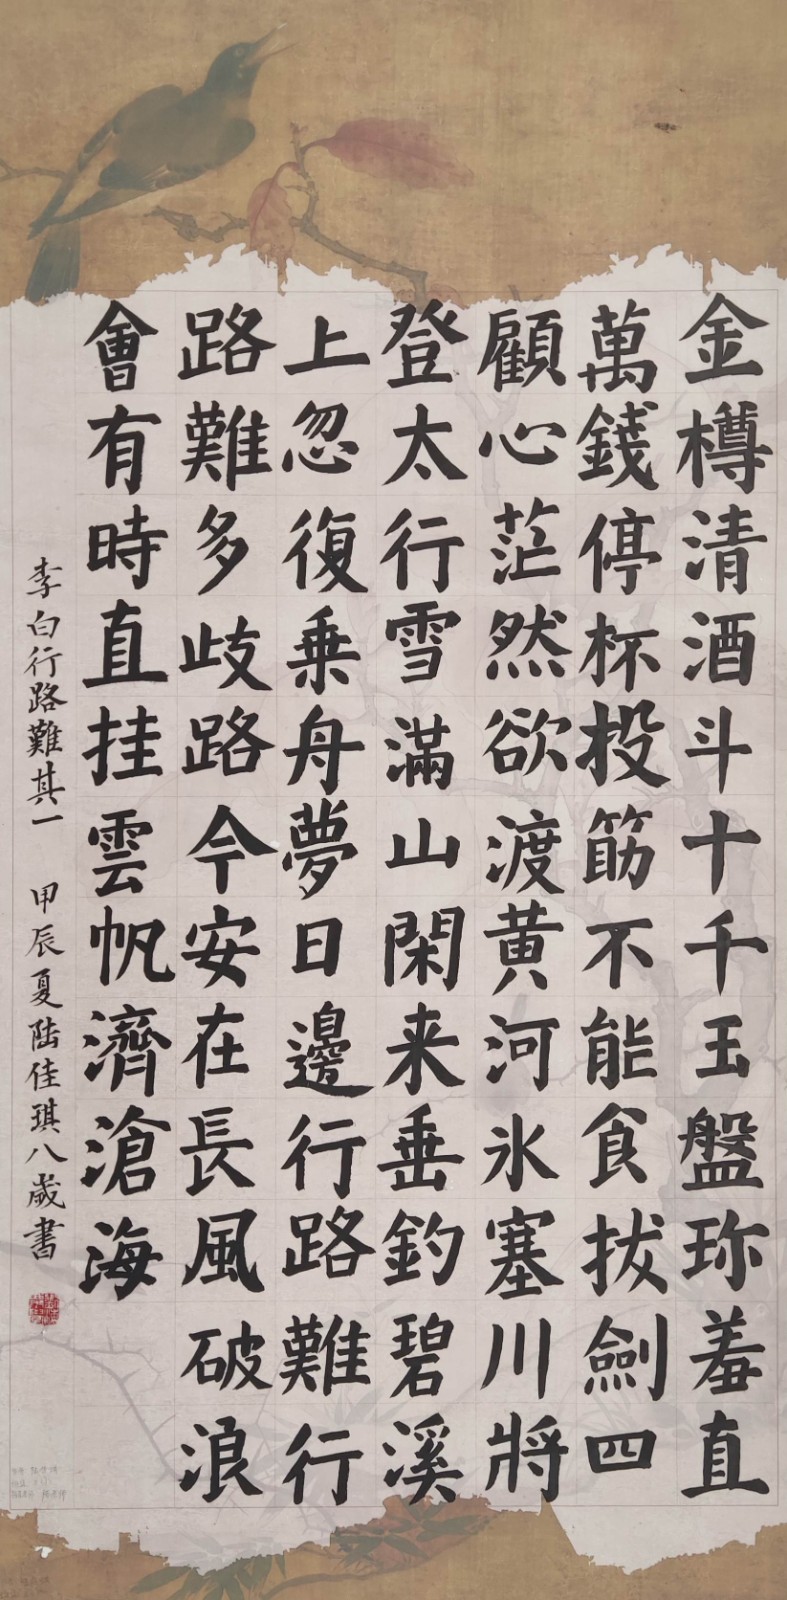 金樽清酒斗十千玉盤珎羞直
萬錢停杯投筯不能食拔劍四
顧心茫然欲渡黃河氷塞川將
登太行雪滿山閑来垂釣碧溪
上忽復乗舟夢日邊行路難行
路難多歧路今安在長風破浪
會有時直挂雲帆濟滄海
李白行路難其一 甲辰夏陆佳琪八歲書